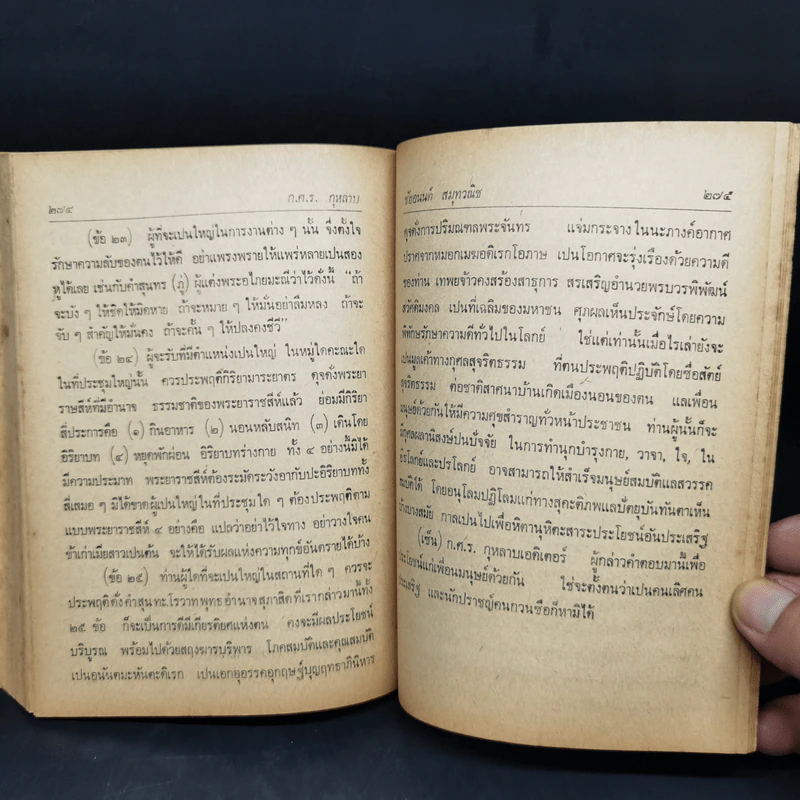 ๒๗๔ ก.ศ.ร. กุหลาบ
(ข้อ ๒๓) ผู้ที่จะเปนใหญ่ในการงานต่าง ๆ นั้น จึ่งตั้งใจ
รักษาความลับของตนไว้ให้ดี อย่าแพรงพรายให้แพร่หลายเปนสอง
หูได้เลย เช่นกับคำสุนทร (ภู่) ผู้แต่งพระอไภยมะณีว่าไว้ดั่งนี้ "ถ้า
จะบัง ๆ ให้ชิดให้มิดหาย ถ้าจะหมาย ๆ ให้มั่นอย่าลืมหลง ถ้าจะ
จับ ๆ สำคัญให้มั่นคง ถ้าจะคั้น ๆ ให้ปลงคงชีวี"
(ข้อ ๒๔) ผู้จะรับที่มีตำแหน่งเปนใหญ่ ในหมู่ใดคะณะใด
ในที่ประชุมใหญ่นั้น ควรประพฤติ์กิริยามาระยาตร ดุจดั่งพระยา
ราษสีห์ที่มีอำนาจ ธรรมชาติของพระยาราชสีห์แล้ว ย่อมมีกิริยา
สี่ประการคือ (๑) กินอาหาร (๒) นอนหลับสนิท (๓) เดินโดย
อิริยาบท (๔) หยุดพักผ่อน อิริยาบทร่างกาย ทั้ง ๔ อย่างนี้มิได้
มีความประมาท พระยาราชสีห์ต้องระมัดระวังอากับปะอิริยาบททั้ง
สี่เสมอ ๆ มิได้ขาดผู้เปนใหญ่ในที่ประชุมใด ๆ ต้องประพฤติตาม
แบบพระยาราชสีห์ ๔ อย่างคือ แปลว่าอย่าไว้ใจทาง อย่าวางใจคน
ข้าเก่าเมียสาวเปนต้น จะให้ได้รับผลแห่งความทุกข์อันตรายได้บ้าง
(ข้อ ๒๕) ท่านผู้ใดที่จะเปนใหญ่ในสถานที่ใด ๆ ควรจะ
ประพฤติดั่งคำสุนทะโรวาทพุทธอำนาจสุภาสิตที่เรากล่าวมานี้ทั้ง
๒๕ ข้อ ก็จะเป็นการดีมีเกียรติยศแห่งตน คงจะมีผลประโยชน์
บริบูรณ พร้อมไปด้วยสฤงฆารบริพาร โภคสมบัติและคุณสมบัติ
เปนอนันตมะหันตะดิเรก เปนเอกอุอรรคอุกฤษฎ์บุญฤทธาภินิหาร
ชัยอนันต์ สมุทวณิช ๒๗๕
ดุจดั่งการปริมณฑลพระจันทร แจ่มกระจางในนะภางค์อากาศ
ปราศจากหมอกเมฆอดิเรกโอภาษ เปนโอกาศจะรุ่งเรืองด้วยความดี
ของท่าน เทพยจ้าวคงสร้องสาธุการ สรเสริญอำนวยพรบวรพิพัฒน์
สวัศดิมงคล เปนที่เฉลิมของมหาชน ศุภผลเห็นประจักษ์โดยความ
พิทักษรักษาความดีทั่วไปในโลกย์ ใช่แต่เท่านั้นเมื่อไรเล่ายังจะ
เปนมูลเค้าทางกุศลสุจริตธรรม ที่ตนประพฤติปฏิบัติโดยซื่อสัตย์
สุจริตธรรม ต่อชาติสาศนาบ้านเกิดเมืองนอนของตน แลเพื่อน
มนุษย์ด้วยกันให้มีความศุขสำราญทั่วหน้าประชาชน ท่านผู้นั้นก็จะ
กุศลผลานิสงษ์ปนปัจจัย ในการทำนุกบำรุงกาย, วาจา, ใจ, ใน
อิธโลกย์และปรโลกย์ อาจสามารถให้สำเร็จมนุษย์สมบัติแลสวรรค
สมบัติได้ โดยอนุโลมปฏิโลมแก่ทางสุคะติภพแลปัตยุบันทันตาเห็น
บ้างบางสมัย กาลเปนไปเพื่อหิตานุหิตะสาระประโยชน์อันประเสริฐ
(เซ็น) ก.ศ.ร. กุหลาบเอดิเตอร์ ผู้กล่าวคำตอบมานี้เพื่อ
ประโยชน์แก่เพื่อนมนุษย์ด้วยกัน ใช่จะตั้งตนว่าเปนคนเลิศคน
ประเสริฐ และนักปราชญ์คนกวนซือก็หามิได้